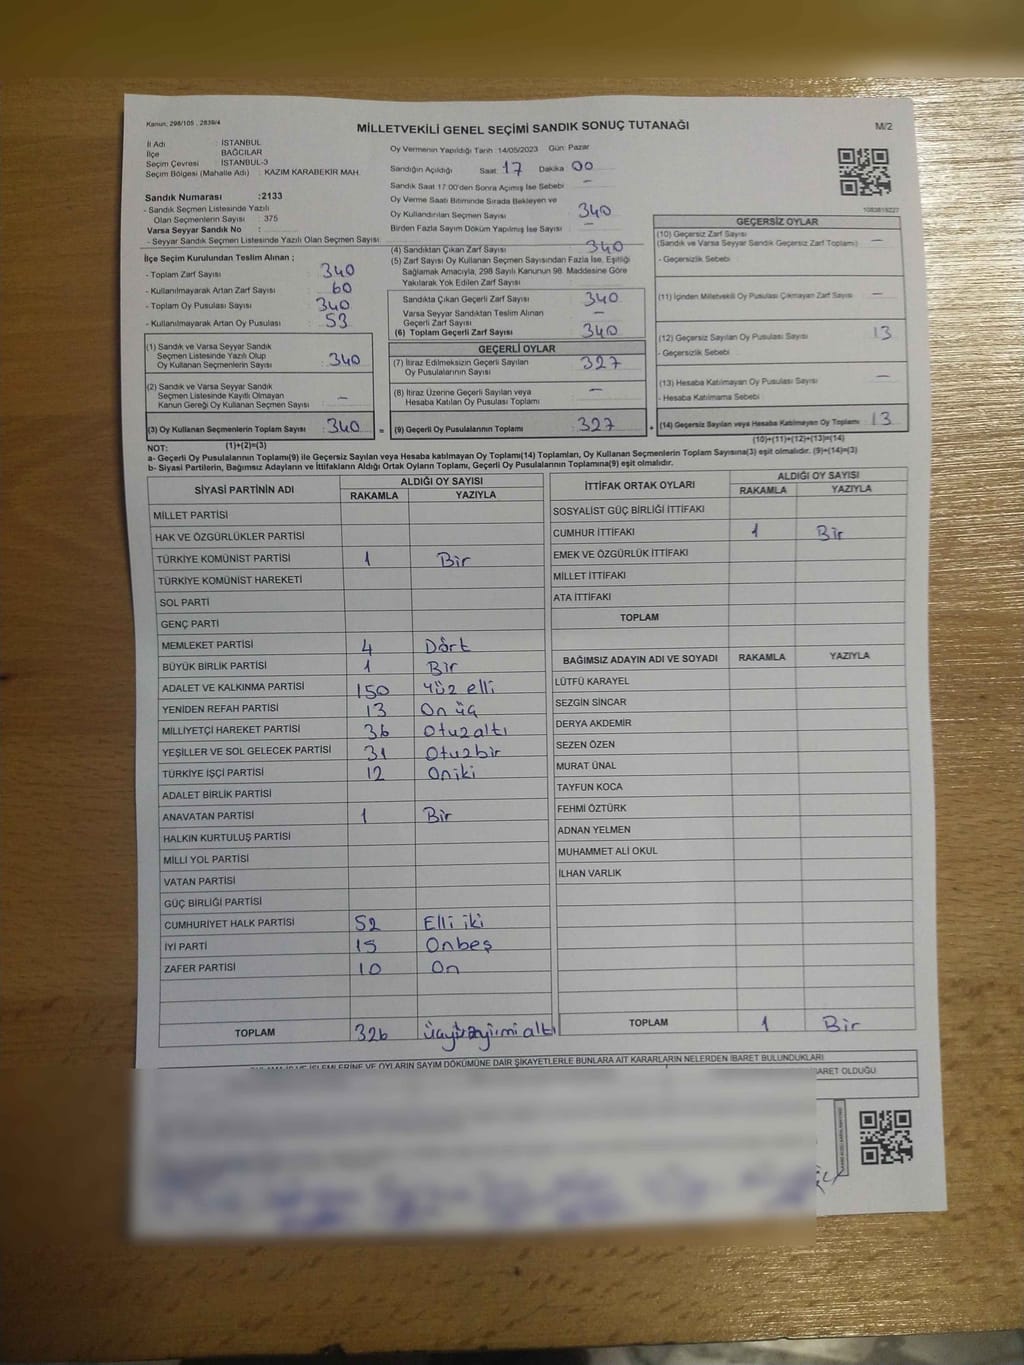 Kanun, 298/105 , 2839/4
MİLLETVEKİLİ GENEL SEÇİMİ SANDIK SONUÇ TUTANAĞI
M/2
İl Adı : İSTANBUL
İlçe : BAĞCILAR
Seçim Çevresi : İSTANBUL-3
Seçim Bölgesi (Mahalle Adı) : KAZIM KARABEKİR MAH.
Sandık Numarası :2133
- Sandık Seçmen Listesinde Yazılı
Olan Seçmenlerin Sayısı : 375
Varsa Seyyar Sandık No :
- Seyyar Sandık Seçmen Listesinde Yazılı Olan Seçmen Sayısı:
Oy Vermenin Yapıldığı Tarih :14/05/2023 Gün: Pazar
Sandığın Açıldığı Saat: 17 Dakika 00
Sandık Saat 17.00'den Sonra Açımış İse Sebebi –
Oy Verme Saati Bitiminde Sırada Bekleyen ve
Oy Kullandırılan Seçmen Sayısı : 340
Birden Fazla Sayım Döküm Yapılmış İse Sayısı : –
1083819227
İlçe Seçim Kurulundan Teslim Alınan ;
- Toplam Zarf Sayısı : 340
- Kullanılmayarak Artan Zarf Sayısı : 60
- Toplam Oy Pusulası Sayısı : 340
- Kullanılmayarak Artan Oy Pusulası : 53
(1) Sandık ve Varsa Seyyar Sandık
Seçmen Listesinde Yazılı Olup
Oy Kullanan Seçmen Sayısı : 340
(2) Sandık ve Varsa Seyyar Sandık
Seçmen Listesinde Kayıtlı Olmayan
Kanun Gereği Oy Kullanan Seçmen Sayısı : –
(3) Oy Kullanan Seçmenlerin Toplam Sayısı : 340 =
(1)+(2)=(3)
(4) Sandıktan Çıkan Zarf Sayısı : 340
(5) Zarf Sayısı Oy Kullanan Seçmen Sayısından Fazla İse, Eşitliği
Sağlamak Amacıyla, 298 Sayılı Kanunun 98. Maddesine Göre
Yakılarak Yok Edilen Zarf Sayısı :
Sandıkta Çıkan Geçerli Zarf Sayısı : 340
Varsa Seyyar Sandıktan Teslim Alınan
Geçerli Zarf Sayısı : –
(6) Toplam Geçerli Zarf Sayısı : 340
GEÇERLİ OYLAR
(7) İtiraz Edilmeksizin Geçerli Sayılan
Oy Pusulalarının Sayısı : 327
(8) İtiraz Üzerine Geçerli Sayılan veya
Hesaba Katılan Oy Pusulası Toplamı : –
(9) Geçerli Oy Pusulalarının Toplamı : 327 +
GEÇERSİZ OYLAR
(10) Geçersiz Zarf Sayısı : –
(Sandık ve Varsa Seyyar Sandık Geçersiz Zarf Toplamı)
- Geçersizlik Sebebi
(11) İçinden Milletvekili Oy Pusulası Çıkmayan Zarf Sayısı : –
(12) Geçersiz Sayılan Oy Pusulası Sayısı : 13
- Geçersizlik Sebebi :
(13) Hesaba Katılmayan Oy Pusulası Sayısı : –
- Hesaba Katılmama Sebebi :
(14) Geçersiz Sayılan veya Hesaba Katılmayan Oy Toplamı : 13
(10)+(11)+(12)+(13)=(14)
NOT:
a- Geçerli Oy Pusulalarının Toplamı(9) ile Geçersiz Sayılan veya Hesaba katılmayan Oy Toplamı(14) Toplamları, Oy Kullanan Seçmenlerin Toplam Sayısına(3) eşit olmalıdır. (9)+(14)=(3)
b- Siyasi Partilerin, Bağımsız Adayların ve İttifakların Aldığı Ortak Oyların Toplamı, Geçerli Oy Pusulalarının Toplamına(9) eşit olmalıdır.
SİYASİ PARTİNİN ADI ALDIĞI OY SAYISI
RAKAMLA YAZIYLA
MİLLET PARTİSİ
HAK VE ÖZGÜRLÜKLER PARTİSİ
TÜRKİYE KOMÜNİST PARTİSİ 1 Bir
TÜRKİYE KOMÜNİST HAREKETİ
SOL PARTİ
GENÇ PARTİ
MEMLEKET PARTİSİ 4 Dört
BÜYÜK BİRLİK PARTİSİ 1 Bir
ADALET VE KALKINMA PARTİSİ 150 Yüz elli
YENİDEN REFAH PARTİSİ 13 On üç
MİLLİYETÇİ HAREKET PARTİSİ 36 Otuzaltı
YEŞİLLER VE SOL GELECEK PARTİSİ 31 Otuzbir
TÜRKİYE İŞÇİ PARTİSİ 12 Oniki
ADALET BİRLİK PARTİSİ
ANAVATAN PARTİSİ 1 Bir
HALKIN KURTULUŞ PARTİSİ
MİLLİ YOL PARTİSİ
VATAN PARTİSİ
GÜÇ BİRLİĞİ PARTİSİ
CUMHURİYET HALK PARTİSİ 52 Elli iki
İYİ PARTİ 15 Onbeş
ZAFER PARTİSİ 10 On
TOPLAM 326
İTTİFAK ORTAK OYLARI ALDIĞI OY SAYISI
RAKAMLA YAZIYLA
SOSYALİST GÜÇ BİRLİĞİ İTTİFAKI
CUMHUR İTTİFAKI 1 Bir
EMEK VE ÖZGÜRLÜK İTTİFAKI
MİLLET İTTİFAKI
ATA İTTİFAKI
TOPLAM
BAĞIMSIZ ADAYIN ADI VE SOYADI RAKAMLA YAZIYLA
LÜTFÜ KARAYEL
SEZGİN SİNCAR
DERYA AKDEMİR
SEZEN ÖZEN
MURAT ÜNAL
TAYFUN KOCA
FEHMİ ÖZTÜRK
ADNAN YELMEN
MUHAMMET ALİ OKUL
İLHAN VARLIK
TOPLAM 1 Bir
VE OYLARIN SAYIM DÖKÜMÜNE DAİR ŞİKAYETLERLE BUNLARA AİT KARARLARIN NELERDEN İBARET BULUNDUKLARI
OLDUĞU